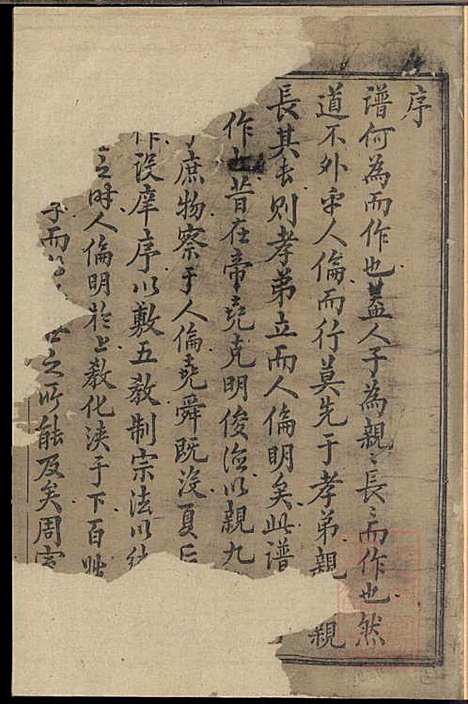 序
譜何為而作也蓋人子為親〻長〻而作也然
道不外乎人倫而行莫先于孝弟親親
長其長則孝弟立而人倫明矣此譜
作也昔在帝堯克明俊德以親九
庶物察于人倫堯舜既沒夏后
作設庠序以敷五教制宗法以
之時人倫明於上教化浹于下百
子而 之所能及矣周室